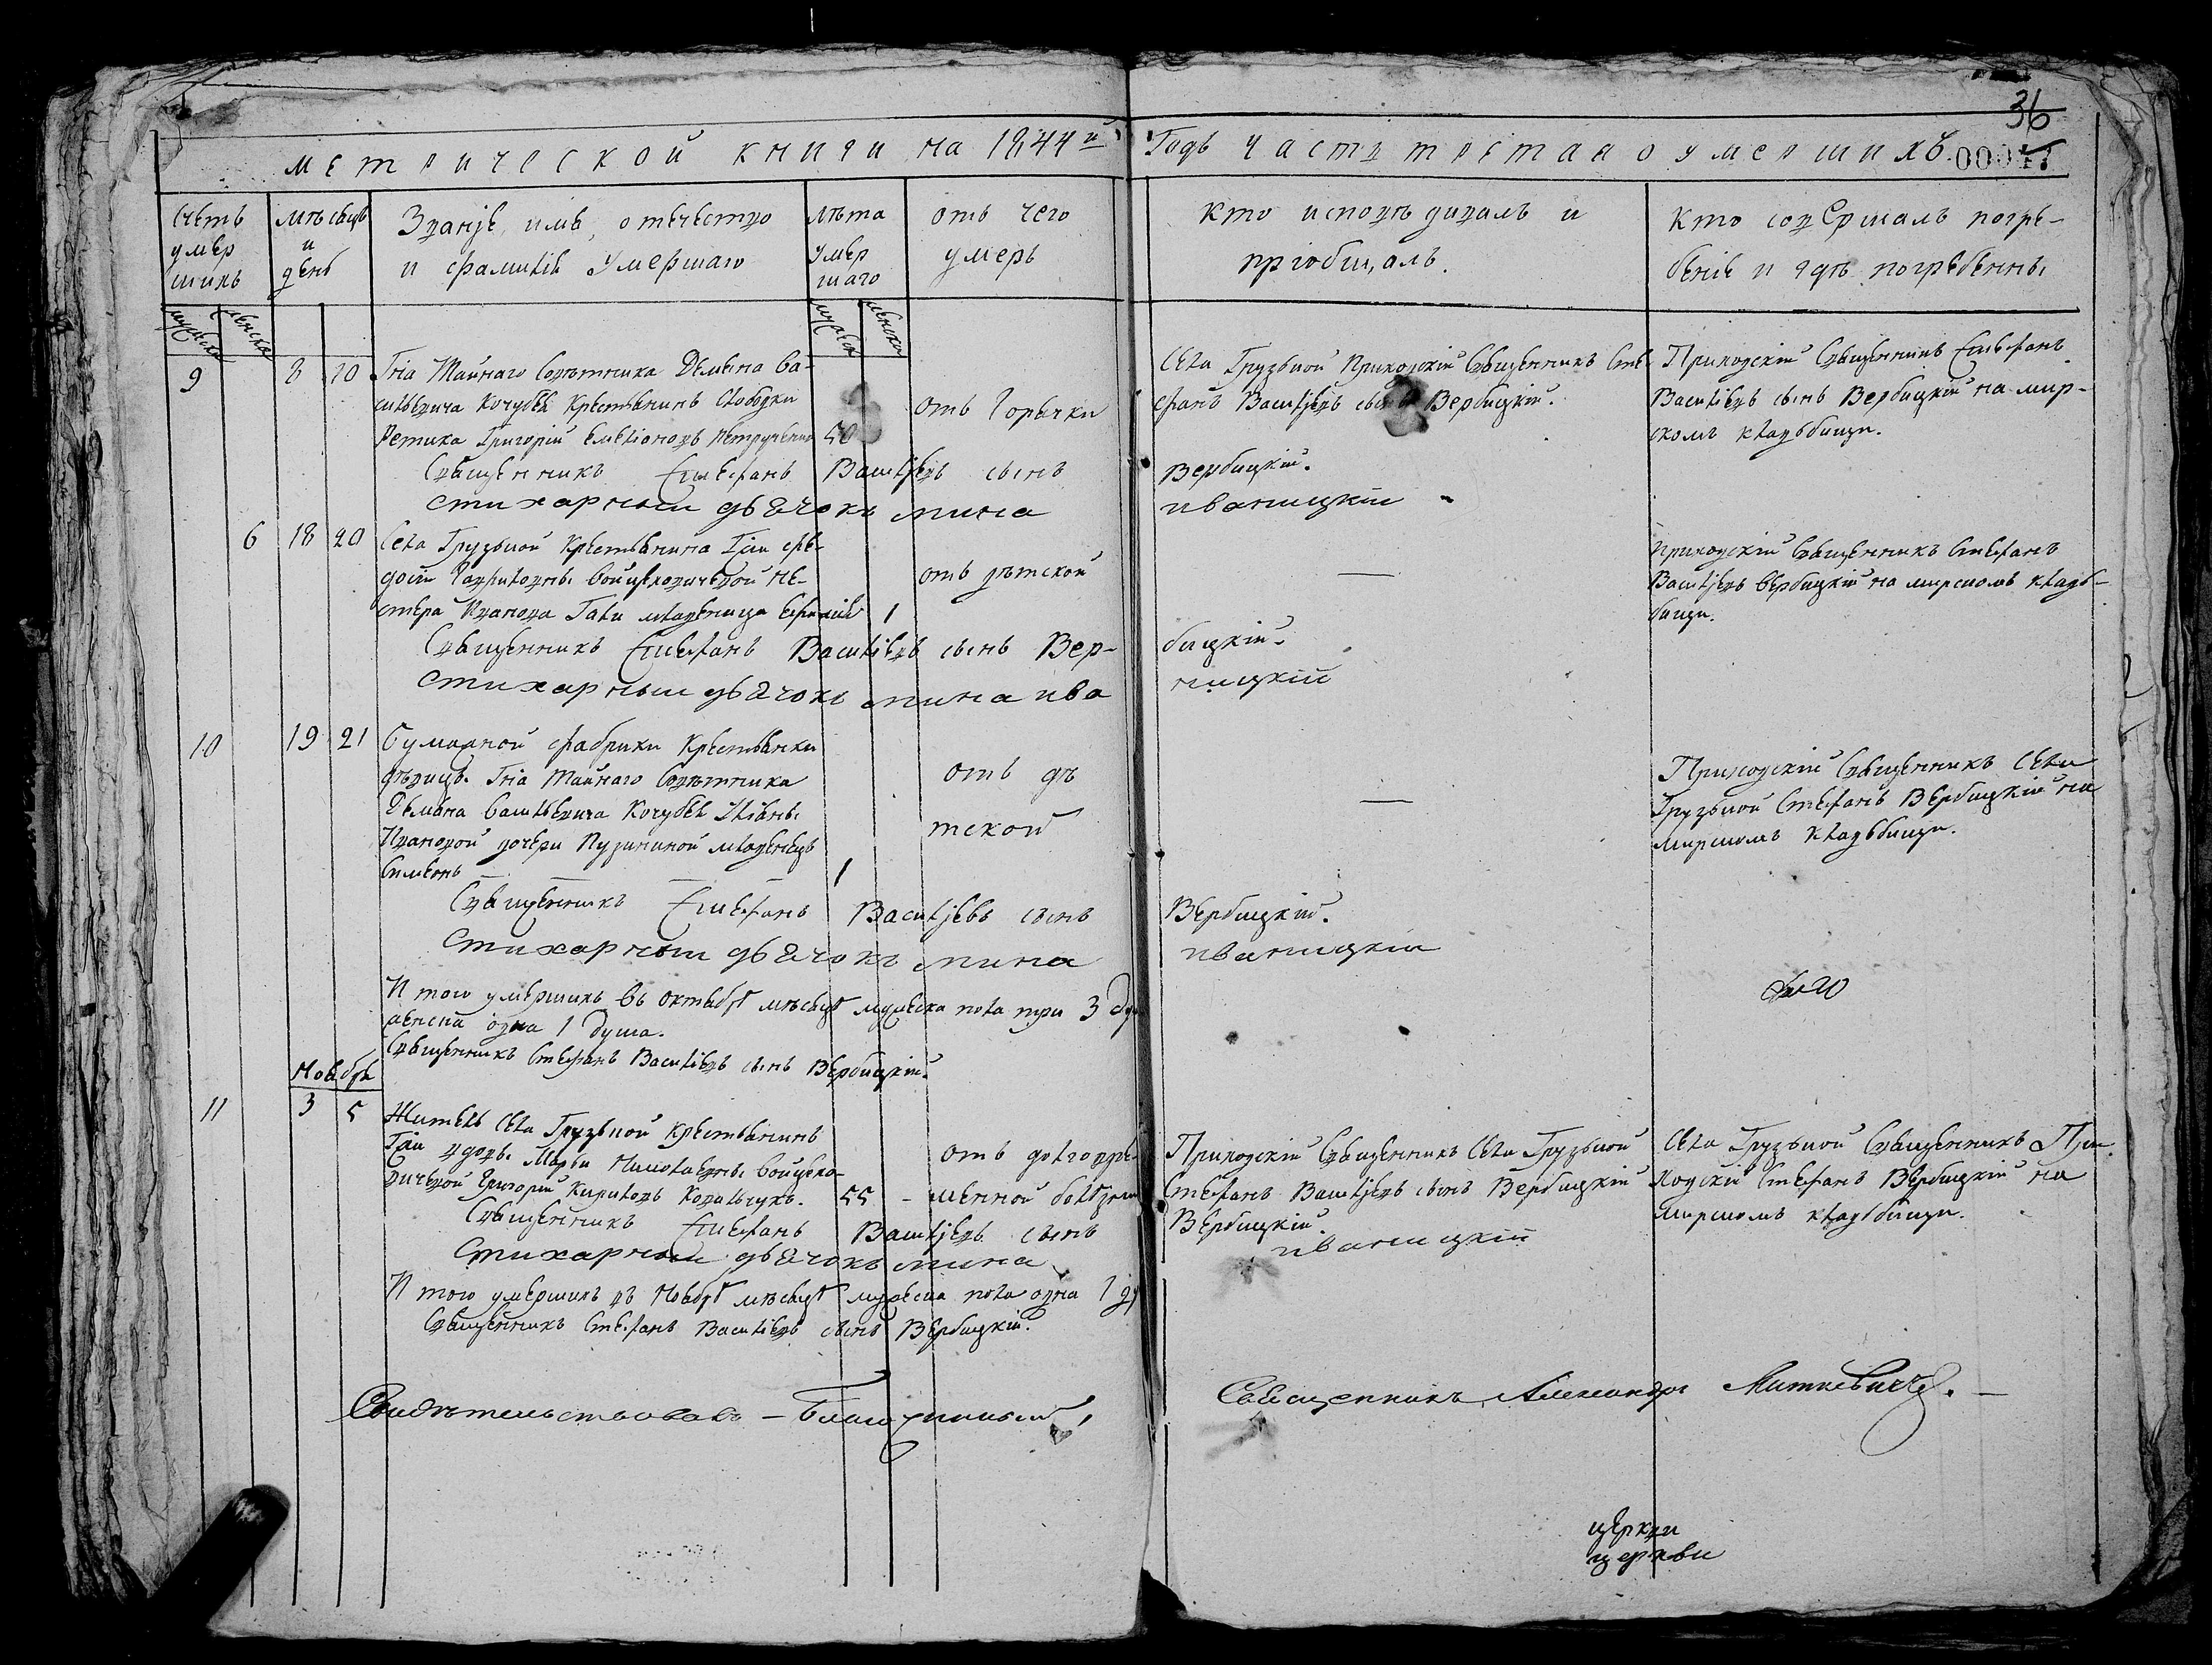 36
метрической книги на 1844й Годъ часть третая о умершихъ
счетъ умер шихъ
мѣсяцъ и день
Званіе, имя, отечество и фамилія умершаго
лѣта умер шаго
отъ чего умеръ
кто исповѣдивалъ и пріобщалъ.
Кто совершалъ погре-
беніе и гдѣ погребенны
мужеска женска
мужеска женска
9 8 10 Гна Тайнаго Совѣтника Демяна Ва-
сильевича Кочубея Крестьянинъ Слободки
Ретика Григорій Емеліановъ Петрученко 50
отъ Горячки
Села Грузской Приходскій Священникъ Сте-
фанъ Васильевъ сынъ Вербицкій.
Приходскій Священникъ Стефанъ
Васильевъ сынъ Вербицкій на мир-
скомъ кладбищи.
Священникъ Стефанъ Васильевъ сынъ Вербицкій.
стихарный дьячокъ мина иваницкій
6 18 20 Села Грузской Крестьянина Гжи Фе-
досіи Гавриловны Войцеховичевой Не-
стера Иванова Гали младеница Ефимія 1
отъ дѣтской
—
приходскій Священникъ Стефанъ
Васильевъ Вербицкій на мирскомъ кладъ-
бищи.
Священникъ Стефанъ Васильевъ сынъ Вер- бицкій.
стихарный дьячокъ мина ива ницкій
10 19 21 Бумажной фабрики Крестьянки
дѣвицы Гна Тайнаго Совѣтника
Демяна Васильевича Кочубея Уліяны
Ивановой дочери Пузининой младенецъ
Симеонъ 1
отъ дѣ
тской
—
Приходскій Священникъ Села
Грузской Стефанъ Вербицкій на
мирскомъ кладбищи.
Священникъ Стефанъ Васильевъ сынъ Вербицкій.
стихарный дьячокъ мина иваницкій
И того умершихъ въ октябрѣ мѣсяцѣ мужеска пола три 3 ду
женска одна 1 душа.
Священникъ Стефанъ Васильевъ сынъ Вербицкій.
Ноября
11 3 5 Житель Села Грузской Крестьянинъ
Гжи вдовы Марьи Николаевны Войцехо-
вичевой Григорій Кириловъ Ковальчукъ. 55
отъ долговре-
менной болезни
Приходскій Священникъ Села Грузской
Стефанъ Васильевъ сынъ Вербицкій
Села Грузской Священникъ При-
ходскій Стефанъ Вербицкій на
мирскомъ кладбищи.
Священникъ Стефанъ Васильевъ сынъ Вербицкій.
стихарный дьячокъ мина иваницкій
И того умершихъ въ Ноябрѣ мѣсяцѣ мужеска пола одна 1 ду
Священникъ Стефанъ Васильевъ сынъ Вербицкій.
Свидѣтельствовавъ — Благочинный, Священникъ Александръ Миткевичъ.
церкви
церкви